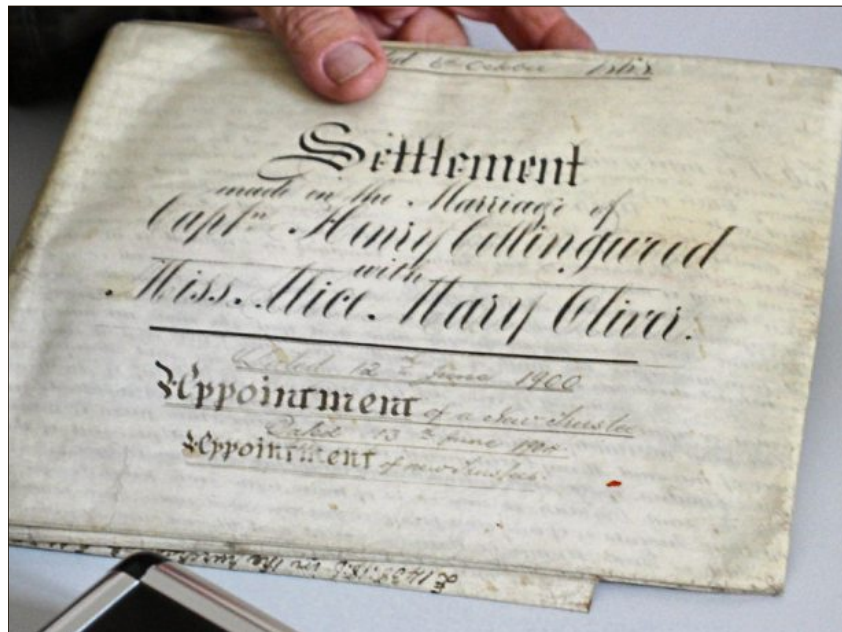 October 1868
Settlement
made on the Marriage of
Captn. Henry Collingwood
with
Miss. Alice. Mary Oliver.
Dated 12th June 1900
Appointment of a new Trustee
Dated 13th June 1900
Appointment of new Trustees.
in the